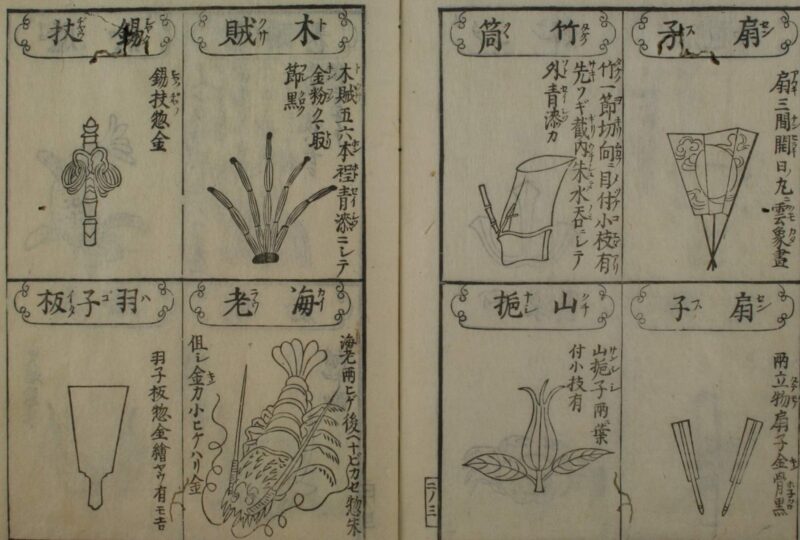 扇子
扇三間開日ノ丸ニ雲象畫
竹筒
竹一節切向ニ目付小枝有
先ソギ截内朱水呑ニシテ
外青漆カ
扇子
兩立物扇子金骨黒
山梔
山梔子兩葉
付小枝有
二ノ三
木賊
木賊五六本程青漆ニシテ
金粉クヽ取
節黒
錫杖
錫杖惣金
海老
海老兩ヒゲ後ヘナビカセ惣朱
但シ金カ小ヒゲハリ金
羽子板
羽子板惣金繪ヤウ有モ吉